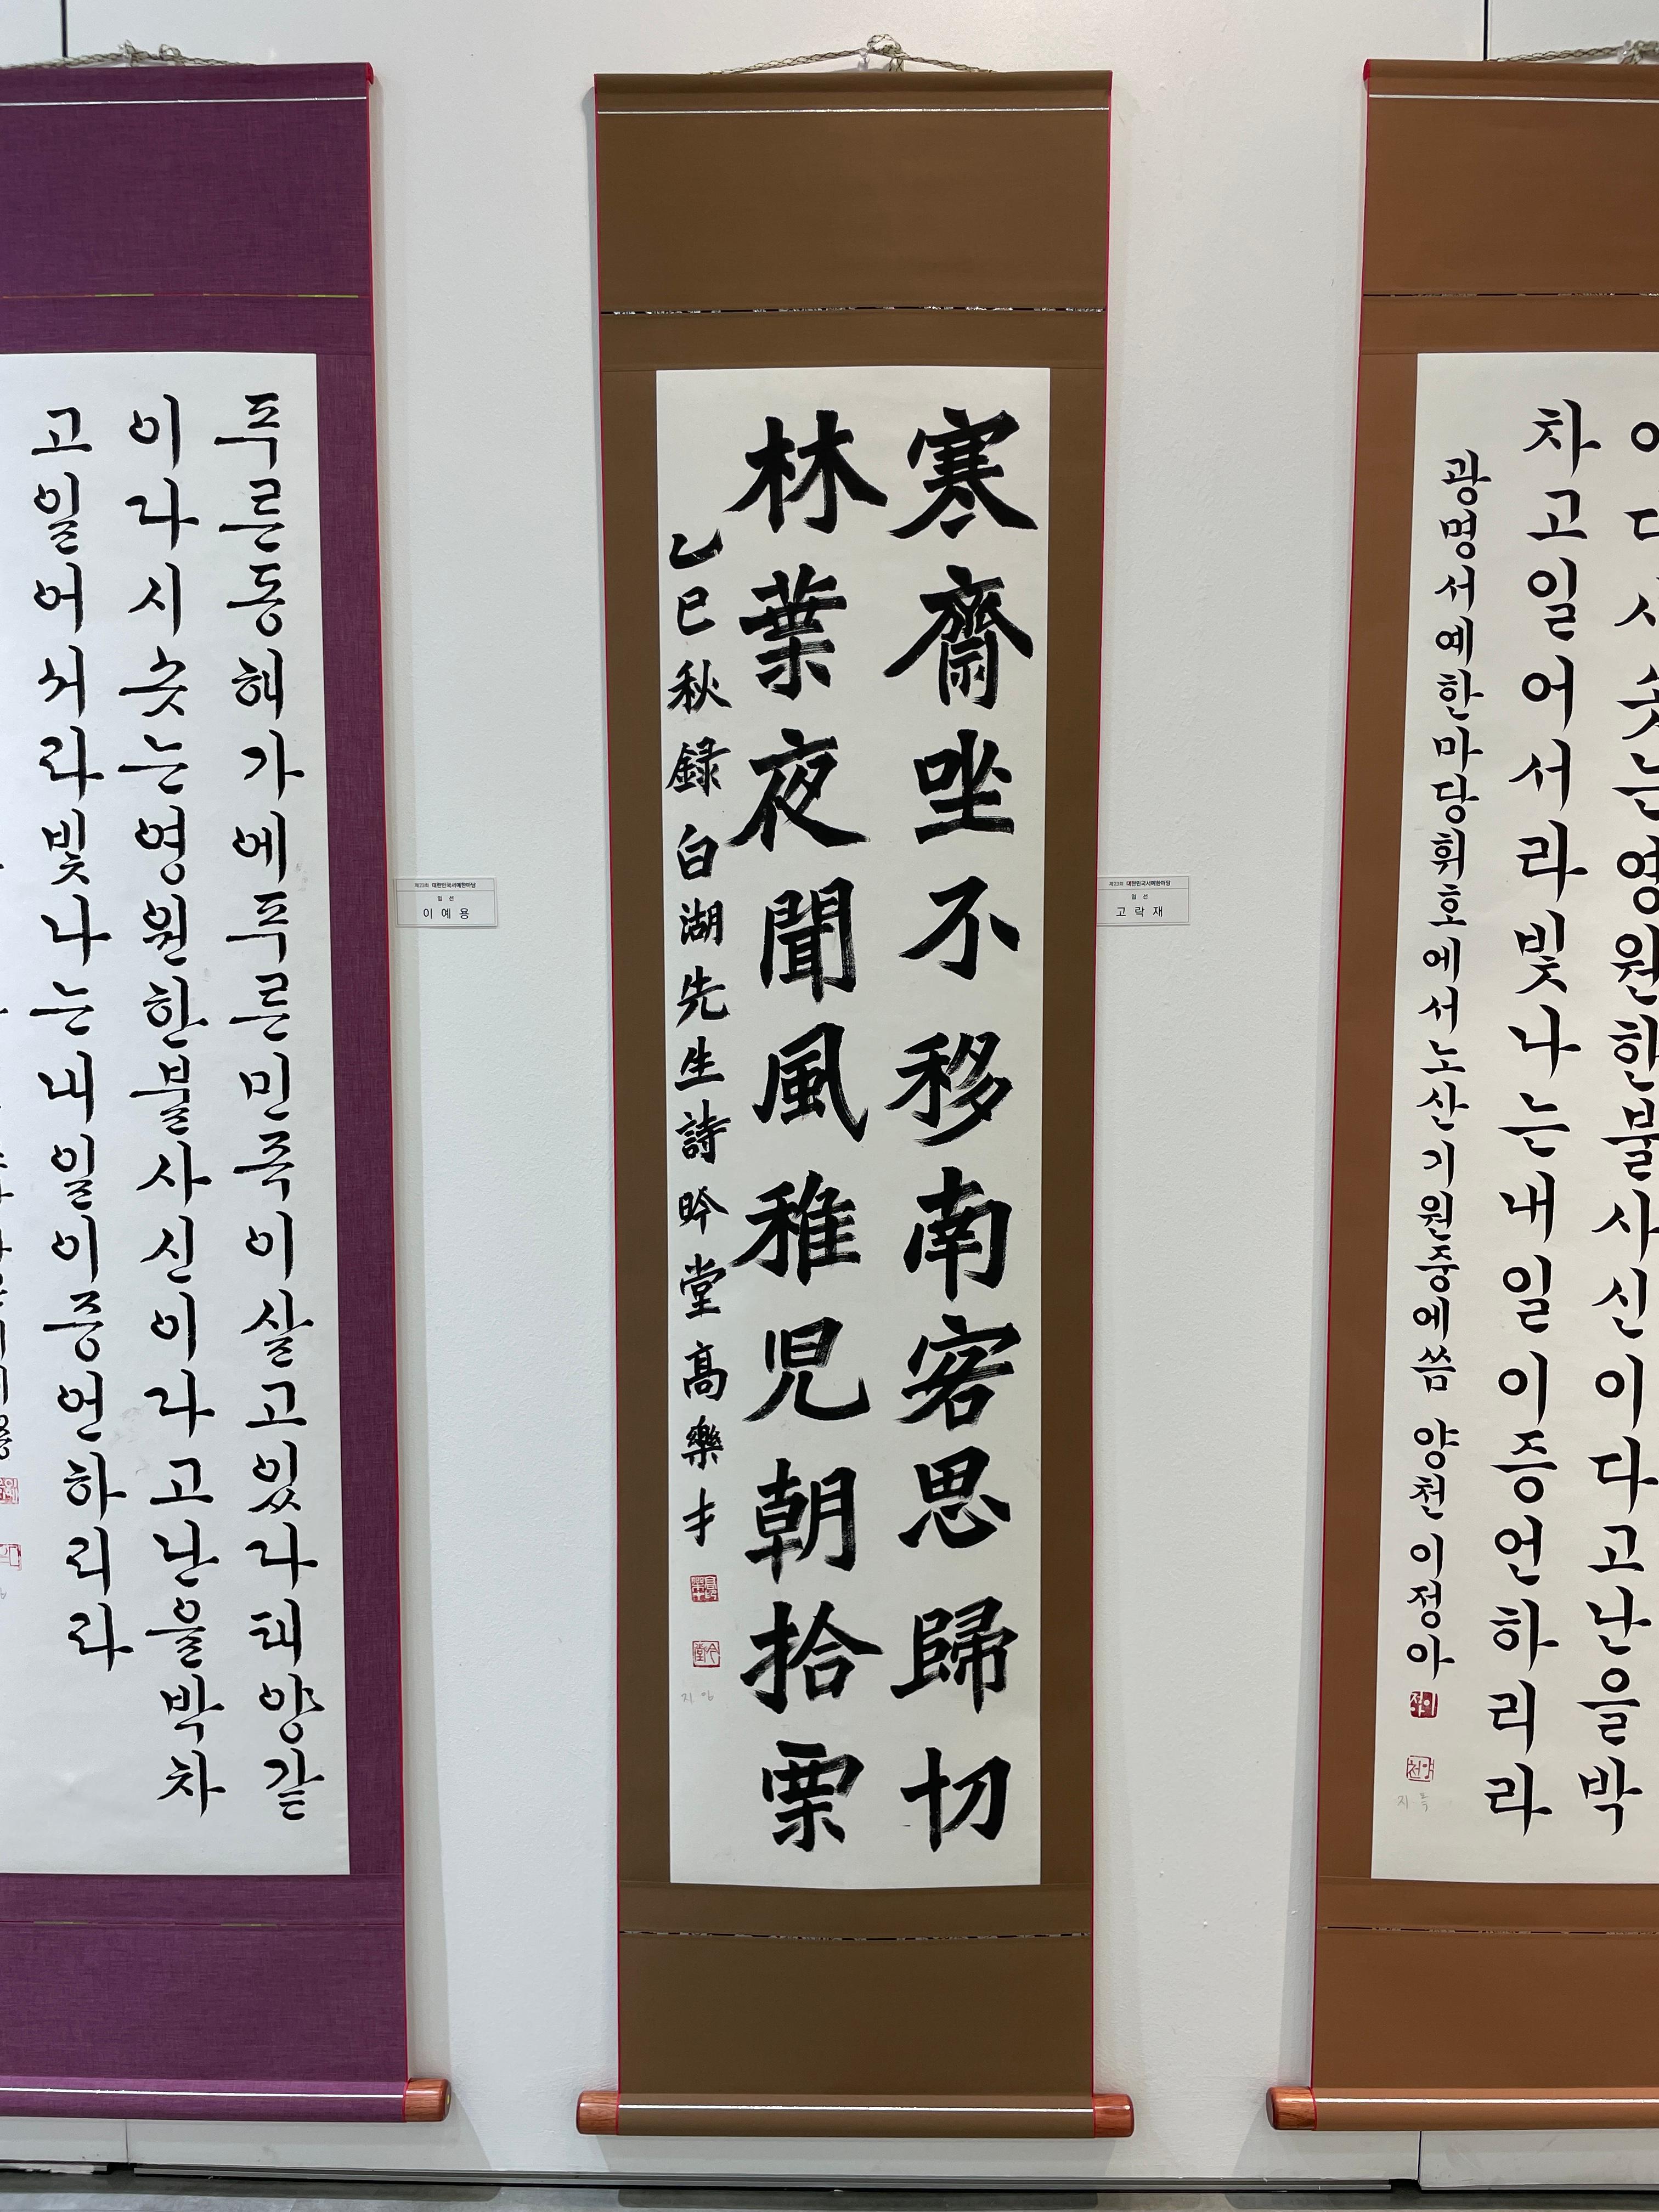 푸른동해가에푸른민족이살고있다태양같
이다시솟는영원한불사신이다고난을박차
고일어서라빛나는내일이증언하리라
제33회 대한민국서예한마당
입 선
이 예 용
寒齋坐不移南客思歸切
林葉夜聞風稚児朝拾栗
乙巳秋録白湖先生詩昑堂高樂才
제33회 대한민국서예한마당
입 선
고 락 재
이다시솟는영원한불사신이다고난을박
차고일어서라빛나는내일이증언하리라
광명서예한마당휘호에서노산기원중에씀 양천 이정아